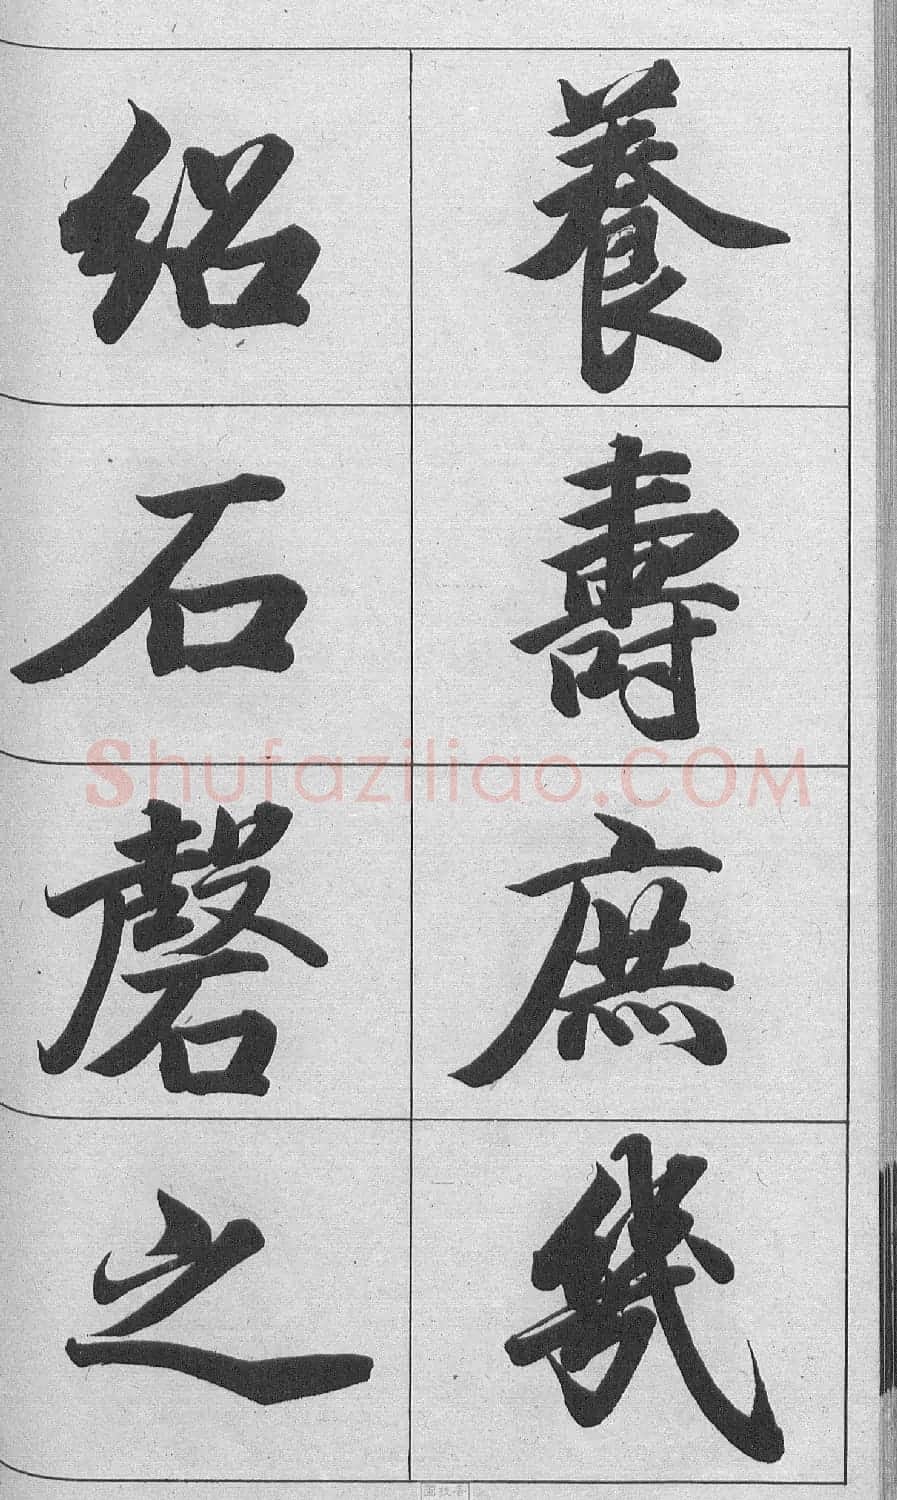 養壽庶幾
紹石磬之
Shufaziliao.COM